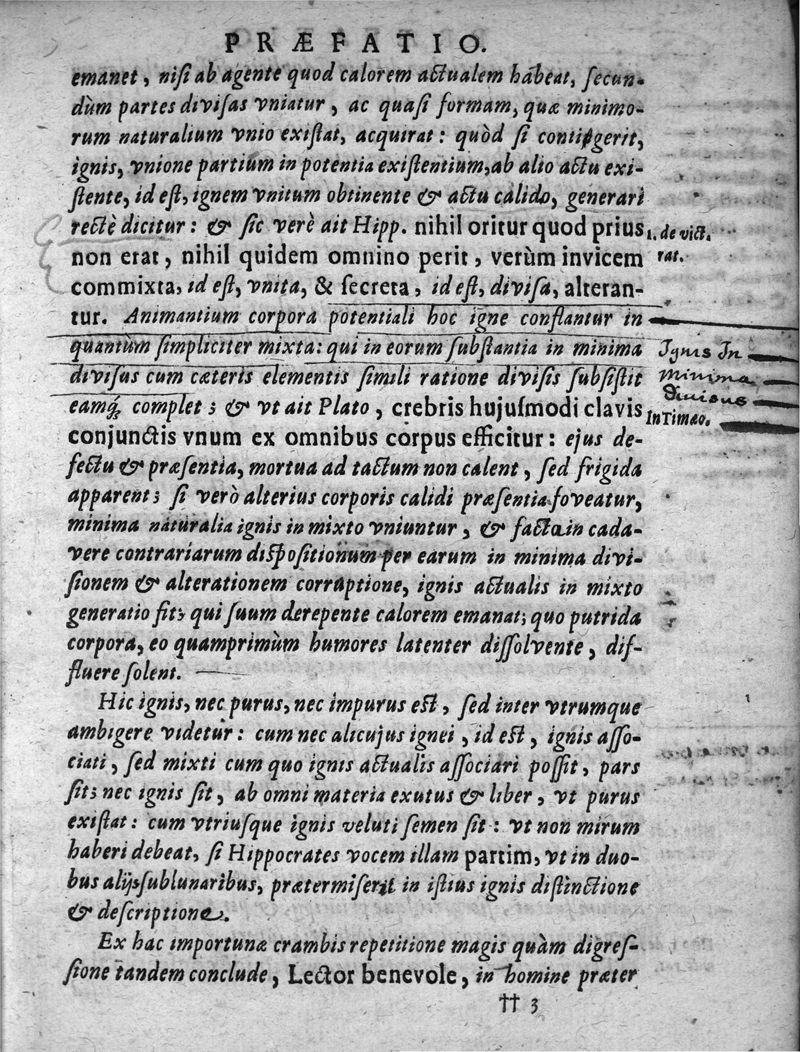 PRÆFATIO.
emanet, niſi ab agente quod calorem actualem habeat, ſecun-
dùm partes diviſas vniatur, ac quaſi formam, quæ minimo-
rum naturalium vnio exiſtat, acquirat: quòd ſi contigerit,
ignis, vnione partium in potentia exiſtentium, ab alio actu exi-
ſtente, id eſt, ignem vnitum obtinente & actu calido, generari
rectè dicitur: & ſic verè ait Hipp. nihil oritur quod prius
1. de vict.
non erat, nihil quidem omnino perit, verùm invicem
rat.
commixta, id eſt, vnita, & ſecreta, id eſt, diviſa, alteran-
tur. Animantium corpora potentiali hoc igne conflantur in
quantùm ſimpliciter mixta: qui in eorum ſubſtantia in minima
Ignis In
diviſus cum cæteris elementis ſimili ratione diviſis ſubſiſtit
minima
diuisus
eamq́; complet; & vt ait Plato, crebris hujuſmodi clavis
In Timæo.
conjunctis vnum ex omnibus corpus efficitur: ejus de-
fectu & præſentia, mortua ad tactum non calent, ſed frigida
apparent; ſi verò alterius corporis calidi præſentia foveatur,
minima naturalia ignis in mixto vniuntur, & facta in cada-
vere contrariarum diſpoſitionum per earum in minima divi-
ſionem & alterationem corruptione, ignis actualis in mixto
generatio fit; qui ſuum derepente calorem emanat; quo putrida
corpora, eo quamprimùm humores latenter diſſolvente, dif-
fluere ſolent.
Hic ignis, nec purus, nec impurus eſt, ſed inter vtrumque
ambigere videtur: cum nec alicujus ignei, id eſt, ignis aſſo-
ciati, ſed mixti cum quo ignis actualis aſſociari poſſit, pars
ſit; nec ignis ſit, ab omni materia exutus & liber, vt purus
exiſtat: cum vtriuſque ignis veluti ſemen ſit: vt non mirum
haberi debeat, ſi Hippocrates vocem illam partim, vt in duo-
bus alijs ſublunaribus, prætermiſerit in iſtius ignis diſtinctione
& deſcriptione.
Ex hac importuna crambis repetitione magis quàm digreſ-
ſione tandem conclude, Lector benevole, in homine præter
†† 3